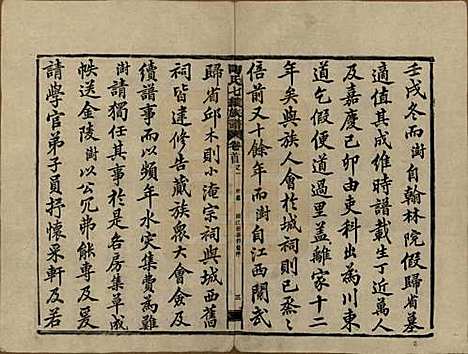 壬戌冬而澍自翰林院假歸省墓
適值其成維時譜載生丁近萬人
及嘉慶己卯由吏科出為川東
道乞假便過里蓋離家十二
年矣與族人會於城祠則已烝烝
倍前又十餘年而澍自江西閱武
陶氏七續族譜 卷首之一 三
歸省邱木則小淹宗祠與城西舊
祠皆逮修告蕆族眾大會僉及
續譜事時水灾集費為難
澍請獨任其資各房集草成
帙送金陵澍以公冗弗能專及
請學官弟子員抒懷采軒及若